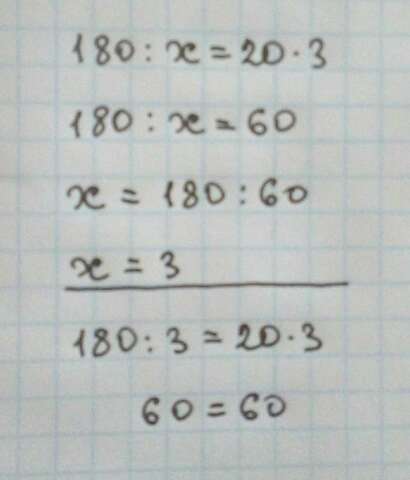 180 : x = 20 · 3
180 : x = 60
x = 180 : 60
x = 3
180 : 3 = 20 · 3
60 = 60